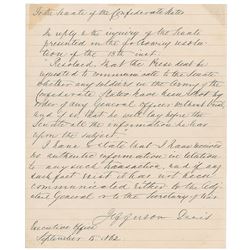 To the Senate of the Confederate States
In reply to the inquiry of the Senate
presented in the following resolu-
tion of the inst.
"Resolved, That the President be
requested to communicate to the Senate
whether any soldiers in the army of the
Confederate States have been shot by
order of any General officer without trial
and if so that he will lay before the
Senate all the information he has
upon the subject"
I have to state that I have received
no authentic information in relation
to any such transaction and if any
such fact exist it has not been
communicated either to the Adj
General or to the Secretary of War
Jefferson Davis
Executive Office
September 15 1862